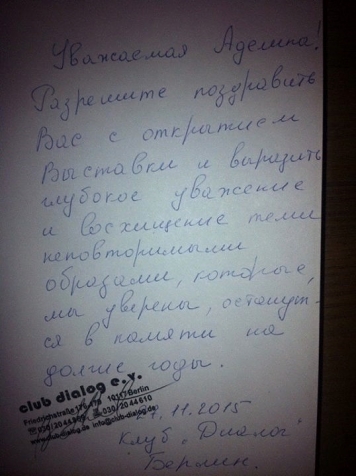 Уважаемая Аделина!
Разрешите поздравить
Вас с открытием
Выставки и выразить
глубокое уважение
и восхищение теми
неповторимыми
образами, которые,
мы уверены, останут-
ся в памяти на
долгие годы.
club dialog e.v.
Friedrichstraße 176-179 10117 Berlin
030/20 44 859 030/20 44 610
www.club-dialog.de info@club-dialog.de
27.11.2015
Клуб "Диалог"
Берлин.